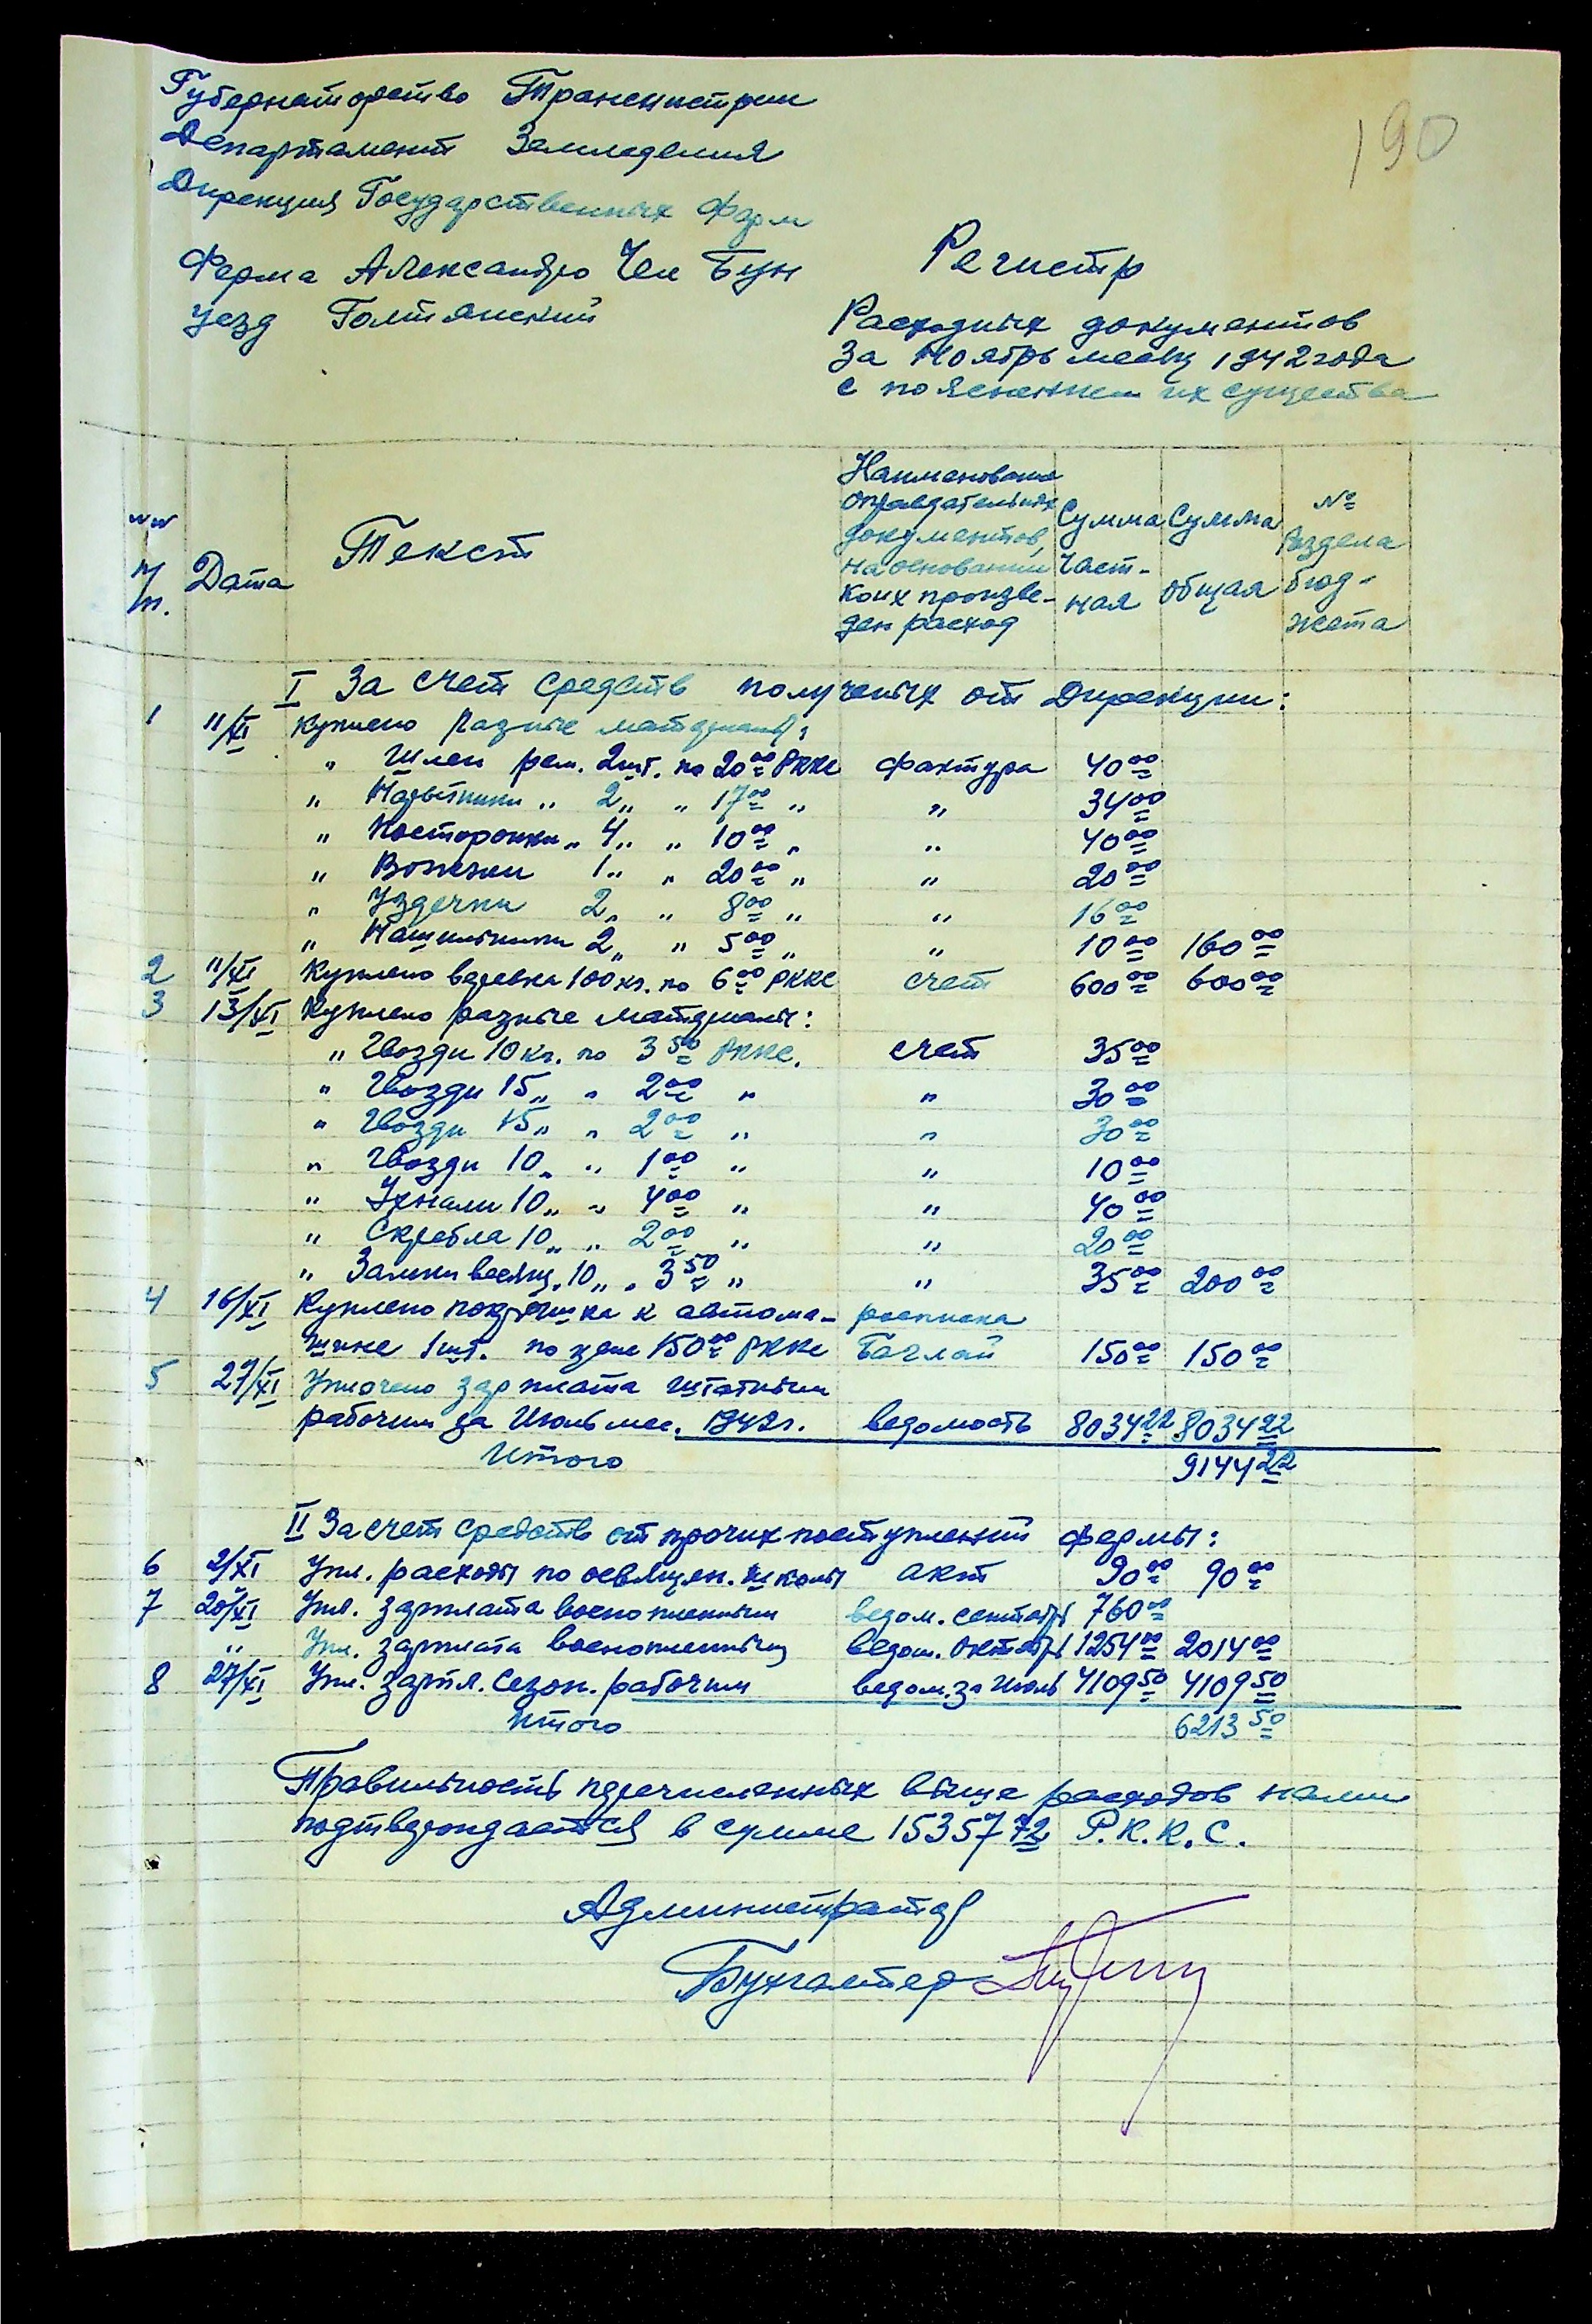 190
Губернаторство Транснистрии
Департамент Земледелия
Дирекция Государственных Ферм
Ферма Александро Чел Бун
уезд Голтянский
Регистр
Расходных документов
За Ноябрь месяц 1942 года
с пояснением их существа
№№ п/п. Дата Текст Наименование оправдательных документов, на основании коих произведен расход Сумма Част-ная Сумма общая № раздела бюд-жета
I За счет средств полученых от Дирекции:
1 11/XI Куплено разные материалы:
" Шлеи рем. 2 шт. по 20 00 РККС фактура 40 00
" Нарытники " 2 " " 17 00 " " 34 00
" Посторонки " 4 " " 10 00 " " 40 00
" Вожжи 1 " " 20 00 " " 20 00
" Уздечки 2 " " 8 00 " " 16 00
" Нашильники 2 " " 5 00 " " 10 00 160 00
2 11/XI Куплено веревка 100 кг. по 6 00 РККС счет 600 00 600 00
3 13/XI Куплено разные материалы:
" Гвозди 10 кг. по 3 50 РККС. счет 35 00
" Гвозди 15 " " 2 00 " " 30 00
" Гвозди 15 " " 2 00 " " 30 00
" Гвозди 10 " " 1 00 " " 10 00
" Ухнали 10 " " 4 00 " " 40 00
" Скребла 10 " " 2 00 " " 20 00
" Замки висящ. 10 " " 3 50 " " 35 00 200 00
4 16/XI Куплено покрышка к автома- расписка
шине 1 шт. по цене 150 00 РККС Баглай 150 00 150 00
5 27/XI Уплочено зарплата штатным
рабочим за Июль мес. 1942 г. ведомость 8034 22 8034 22
Итого 9144 22
II За счет средств от прочих поступлений фермы:
6 2/XI Упл. расходы по освящен. школы акт 90 00 90 00
7 20/XI Упл. зарплата военопленным ведом. сентябрь 760 00
" Упл. зарплата военопленным ведом. октябрь 1254 00 2014 00
8 27/XI Упл. зарпл. сезон. рабочим ведом. за Июль 4109 50 4109 50
Итого 6213 50
Правильность перечисленных выше расходов нами
подтверждается в сумме 15357 72 Р.К.К.С.
Администратор
Бухгалтер